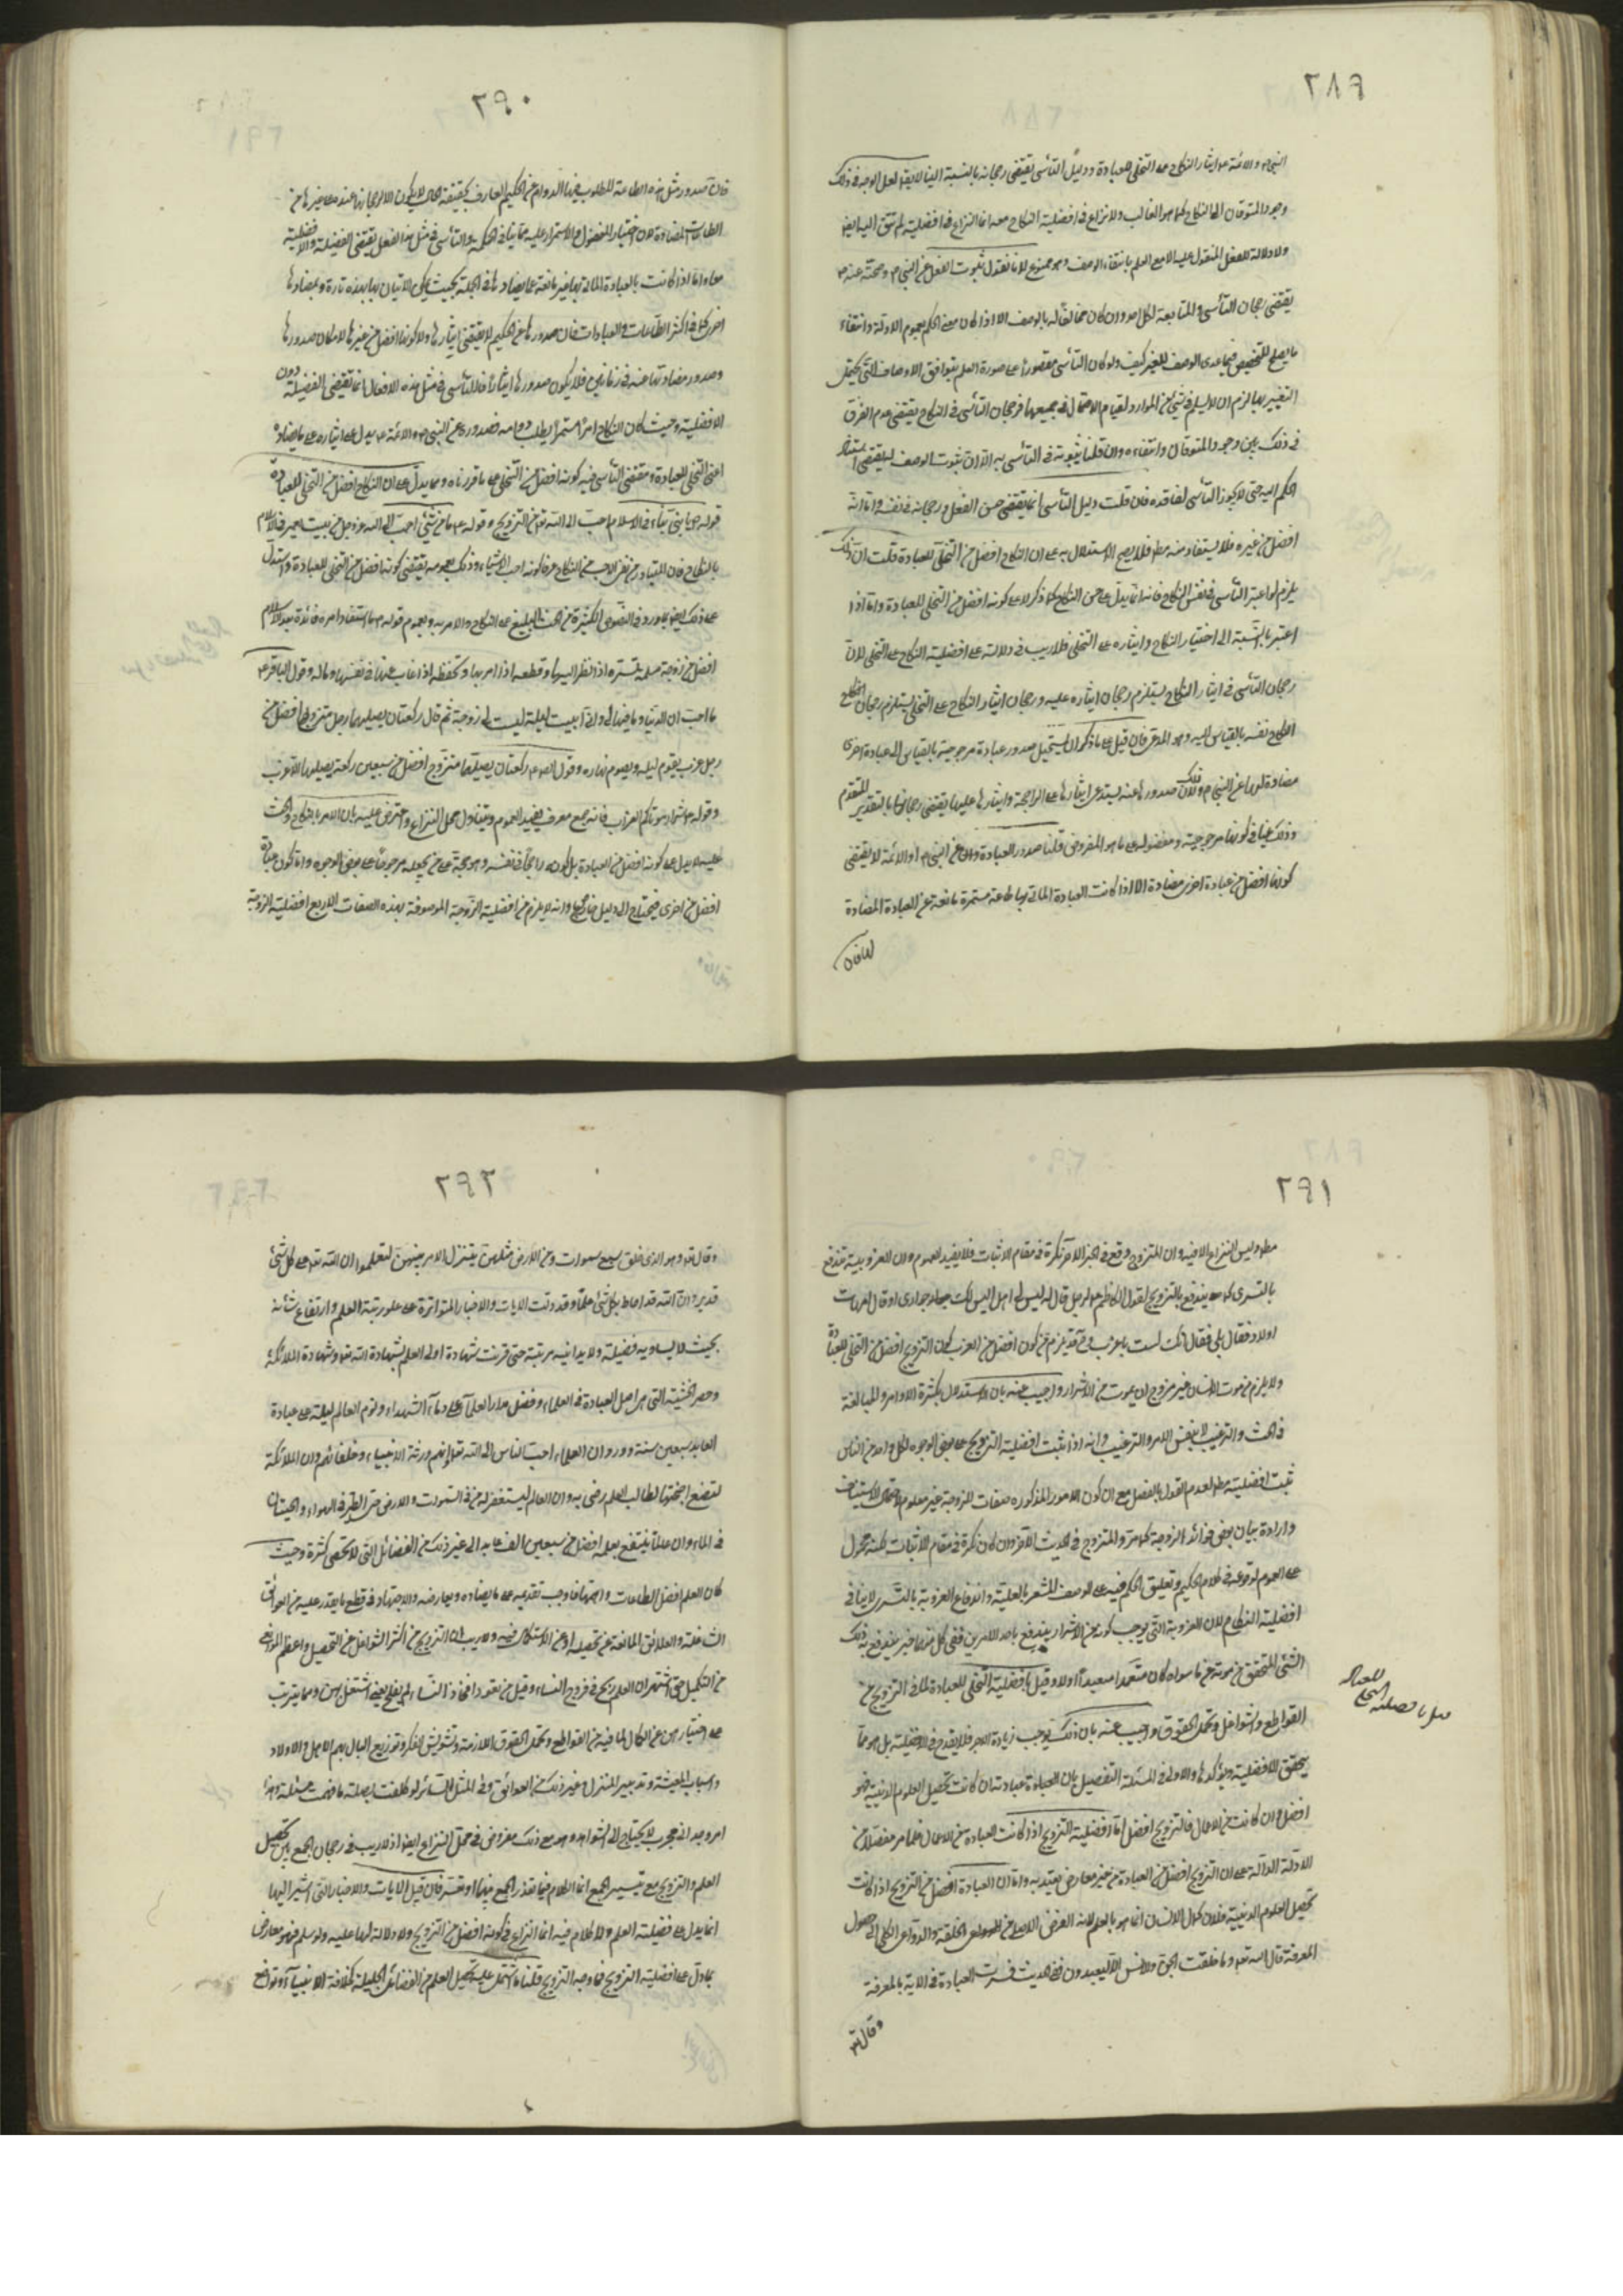 ٢٨٩
النبي ص والائمة ع ايثار النكاح على التخلي للعبادة ودليل التأسي يقتضي رجحانه بالنسبة الينا لا يقال لعل الوجه في ذلك
وجود المتوقان الى النكاح كما هو الغالب ولا نزاع في افضلية النكاح معه انما النزاع في افضليته لم تتق اليه ايضا
ولا دلالة للفعل المنقول عليه الا مع العلم بانتفاء الوصف وهو ممنوع لانا نقول ثبوت الفعل عن النبي ص وصحته عنه ص
يقتضي رجحان التأسي والمتابعة لكل احد وان كان مخالفا له بالوصف الا اذا كان معنى الحكم بعموم الادلة وانتفاء
ما يصلح للتخصيص فيما عدى الوصف للغير كيف ولو كان التأسي مقصورا على صورة العلم بتوافق الاوصاف التي يحتمل
التغيير بها لزم ان لا يسلم في شيء من الموارد لقيام الاحتمال في جميعها فرجحان التأسي في النكاح يقتضي عدم الفرق
في ذلك بين وجود المتوقان وانتفاءه وان قلنا بثبوته في التأسي به اذ ان ثبوت الوصف لا يقتضي استناد
الحكم اليه حتى لا يجوز التأسي لفاقده فان قلت دليل التأسي انما يقتضي حسن الفعل ورجحانه في نفسه واما انه
افضل من غيره فلا يستفاد منه مط فلا يصح الاستدلال به على ان النكاح افضل من التخلي للعبادة قلت ان ذلك
يلزم لو اعتبر التأسي في نفس النكاح فانه انما يدل على حسن النكاح كما ذكر لا على كونه افضل من التخلي للعبادة واما اذا
اعتبر بالنسبة الى اختيار النكاح وايثاره على التخلي فلا ريب في دلالته على افضلية النكاح على التخلي لان
رجحان التأسي في ايثار النكاح يستلزم رجحان ايثاره عليه ورجحان ايثار النكاح على التخلي يستلزم رجحان النكاح
النكاح نفسه بالقياس اليه وهو المدعى فان قيل على ما ذكر ان يستحيل صدور عبادة مرجوحة بالقياس الى عبادة اخرى
مضادة لها عن النبي ص وذلك لان صدورها عنه يستدعي ايثارها على الراجحة وايثارها عليها يقتضي رجحانها بالتقدير المتقدم
وذلك ينافي كونها مرجوحة ومفضوله على ما هو المفروض قلنا صدور العبادة وان عن النبي ص او الائمة لا يقتضي
كونها افضل من عبادة اخرى مضادة الا اذا كانت العبادة الماتي بها طاعة مستمرة مانعة عن العبادة المضادة
٢٩٠
فان صدور مثل هذه الطاعة المطلوب فيها الدوام عن الحكيم العارف بحقيقة الحال لا يكون الا لرجحانها عنده على غيرها من
الطاعات المضادة لان اختيار المفضول والاستمرار عليه مما ينافي الحكمة والتأسي في مثل هذا الفعل يقتضي الفضيلة والافضلية
معا واما اذا كانت بالعبادة الماتي بها غير مانعة عما يضادها في الجملة بحيث يمكن الاتيان بها بهذه تارة وبمضادها
اخرى كما في اكثر الطاعات والعبادات فان صدورها عن الحكيم لا يقتضي ايثارها ولا كونها افضل من غيرها لامكان صدورها
وصدور مضادتها عنه في زمانين فلا يكون صدورها ايثارا فالتأسي في مثل هذه الافعال انما يقتضي الفضيلة دون
الافضلية وحيث كان النكاح امرا مستمرا يطلب دوامه فصدوره عن النبي ص والائمة ع يدل على ايثاره على ما يضاده
اعني التخلي للعبادة ومقتضى التأسي فيه كونه افضل من التخلي على ما قررناه ومما يدل على ان النكاح افضل من التخلي للعبادة
قوله ص ما بني بناء في الاسلام احب الى الله تع من التزويج وقوله ع ما من شيء احب الى الله عز وجل من بيت يعمر في الاسلام
بالنكاح فان المتبادر من نفي الاحب من النكاح عرفا كونه احب الاشياء وذلك بعمومه يقتضي كونه افضل من التخلي للعبادة واستدل
على ذلك ايضا بما ورد في النصوص الكثيرة من الحث البليغ على النكاح والامر به وبعموم قوله ص ما استفاد امرء فائدة بعد الاسلام
افضل من زوجة مسلمة تسره اذا نظر اليها وتطيعه اذا امرها وتحفظه اذا غاب عنها في نفسها وماله وقول الباقر ع
ما احب ان الدنيا وما فيها لي واني ابيت ليلة ليست لي زوجة ثم قال ركعتان يصليهما رجل متزوج افضل من
رجل عزب يقوم ليله ويصوم نهاره وقول الص ع ركعتان يصليهما متزوج افضل من سبعين ركعة يصليها الاعزب
وقوله ص شرار موتاكم العزاب فانه جمع معرف يفيد العموم ويتناول محل النزاع واعترض عليه بان الامر بالنكاح والحث
عليه لا يدل على كونه افضل من العبادة بل كونه راجحا في نفسه وهو حجة على من يجعله مرجوحا على بعض الوجوه واما كون عبادة
افضل من اخرى فيحتاج الى دليل خارج وانه لا يلزم من افضلية الزوجة الموصوفة بهذه الصفات الاربع افضلية الزوجة
٢٩١
مط وليس النزاع الا فيه وان المتزوج وقع في الخبر الآخر نكرة في مقام الاثبات فلا يفيد العموم وان العزوبية تندفع
بالتسري كما يندفع بالتزويج لقول الكاظم ع لرجل قال له ليس لي اهل اليس لك جوار او قال امهات
اولاد فقال بلى فقال انك لست باعزب فيلزم من كون افضل من العزب كان التزويج افضل من التخلي للعبادة
ولا يلزم من موت الانسان غير متزوج ان يموت من الاشرار واجيب عنه بان الاستدلال بكثرة الاوامر والمبالغة
في الحث والترغيب لا بنفس الامر والترغيب وانه اذا ثبت افضلية التزويج على بعض الوجوه لكل واحد من الناس
ثبت افضليته مط لعدم القول بالفصل مع ان كون الامور المذكوره صفات للزوجة غير معلوم لاحتمال الاستيناف
وارادة بيان بعض فوائد الزوجة كما مر والمتزوج في الحديث الآخر وان كان نكرة في مقام الاثبات لكنه محمول
على العموم لوقوعه في كلام الحكيم وتعليق الحكم فيه على الوصف المشعر بالعلية واندفاع العزوبة بالتسري لا ينافي
افضلية النكاح لان العزوبة التي يوجب كونه من الاشرار يندفع باحد الامرين ففي كل منهما خير يندفع به ذلك
الشيء المتحقق من موته عزبا سواء كان متعمدا ام بعيدا اولا وقيل بافضلية التخلي للعبادة لما في التزويج من
القواطع والشواغل وتحمل الحقوق واجيب عنه بان ذلك يوجب زيادة الاجر فلا يقدح في الافضلية بل هو مما
يحقق الافضلية ويؤكدها والاولى في المسئلة التفصيل بان العبادة عبادة ان كانت تحصيل العلوم الدينية فهو
افضل وان كانت من الاعمال فالتزويج افضل اما افضلية التزويج اذا كانت العبادة من الاعمال فلما مر مفصلا من
الادلة الدالة على ان التزويج افضل من العبادة من غير معارض يعتد به واما ان العبادة افضل من التزويج اذا كانت
تحصيل العلوم الدينية فلان كمال الانسان انما هو بالعلم لانه الغرض الاصلي من الخلقة والدواعي الكلي الى حصول
المعرفة قال الله تع وما خلقت الجن والانس الا ليعبدون ففي الحديث فسرت العبادة في الآية بالمعرفة
وقال تع
قيل بافضلية التخلي للعبادة
٢٩٢
وقال تع وهو الذي خلق سبع سموات ومن الارض مثلهن يتنزل الامر بينهن لتعلموا ان الله تع على كل شيء
قدير وان الله قد احاط بكل شيء علما وقد دلت الايات والاخبار المتواترة على علو رتبة العلم وارتفاع شأنه
بحيث لا يساويه فضيلة ولا يدانيه مرتبة حتى قرنت شهادة اولي العلم بشهادة الله تع وشهادة الملائكة
وحصر الخشية التي هي اصل العبادة في العلماء وفضل مداد العلماء على دماء الشهداء ونوم العالم ليلة على عبادة
العابد سبعين سنة وورد ان العلماء احب الناس الى الله تع وانهم ورثة الانبياء وخلفائهم وان الملائكة
لتضع اجنحتها لطالب العلم رضى به وان العالم ليستغفر له من في السموات والارض حتى الطير في الهواء والحيتان
في الماء وان عالما ينتفع بعلمه افضل من سبعين الف عابد الى غير ذلك من الفضائل التي لا تحصى كثرة وحيث
كان العلم افضل الطاعات واهمها وجب تقديمه على ما يضاده ويعارضه والاجتهاد في قطع ما يقدر عليه من العوائق
الشاغلة والعلائق المانعة عن تحصيله او عن الاستكمال فيه ولا ريب ان التزويج من اكثر الشواغل عن التحصيل واعظم الموانع
من التكميل حتى اشتهر ان العلم ذبح في فروج النساء وقيل من تعود افخاذ النساء لم يفلح يعني اشتغل بهن وبما يترتب
على اختيارهن عن الكمال لما فيه من القواطع وتحمل الحقوق اللازمة وتشويش الفكر وتوزيع البال بهم الاهل والاولاد
واسباب المعيشة وتدبير المنزل وغير ذلك من العوائق وفي المثل السائر لو كلفت بصلة ما فهمت مسئلة وهذا
امر وجداني مجرب لا يحتاج الى الشواهد وهو مع ذلك مفروض في محل النزاع ايضا اذ لا ريب في رجحان الجمع بين تحصيل
العلم والتزويج مع تيسير الجمع انما الكلام فيما تعذر الجمع بينهما او تعسر فان قيل الايات والاخبار التي اشير اليها
انما يدل على فضيلة العلم ولا كلام فيه انما النزاع في كونه افضل من التزويج ولا دلالة لها عليه ولو سلم فهو معارض
بما دل على افضلية التزويج فما وجه الترجيح قلنا ما اشتمل عليه تحصيل العلم من الفضائل الجليلة كخلافة الانبياء وتواضع